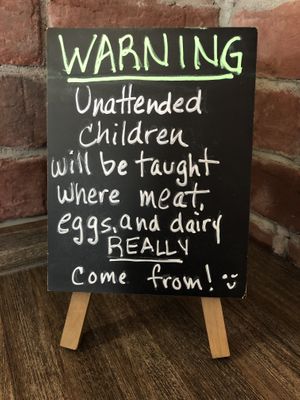 WARNING
Unattended
children
will be taught
where meat,
eggs, and dairy
REALLY
come from! :)